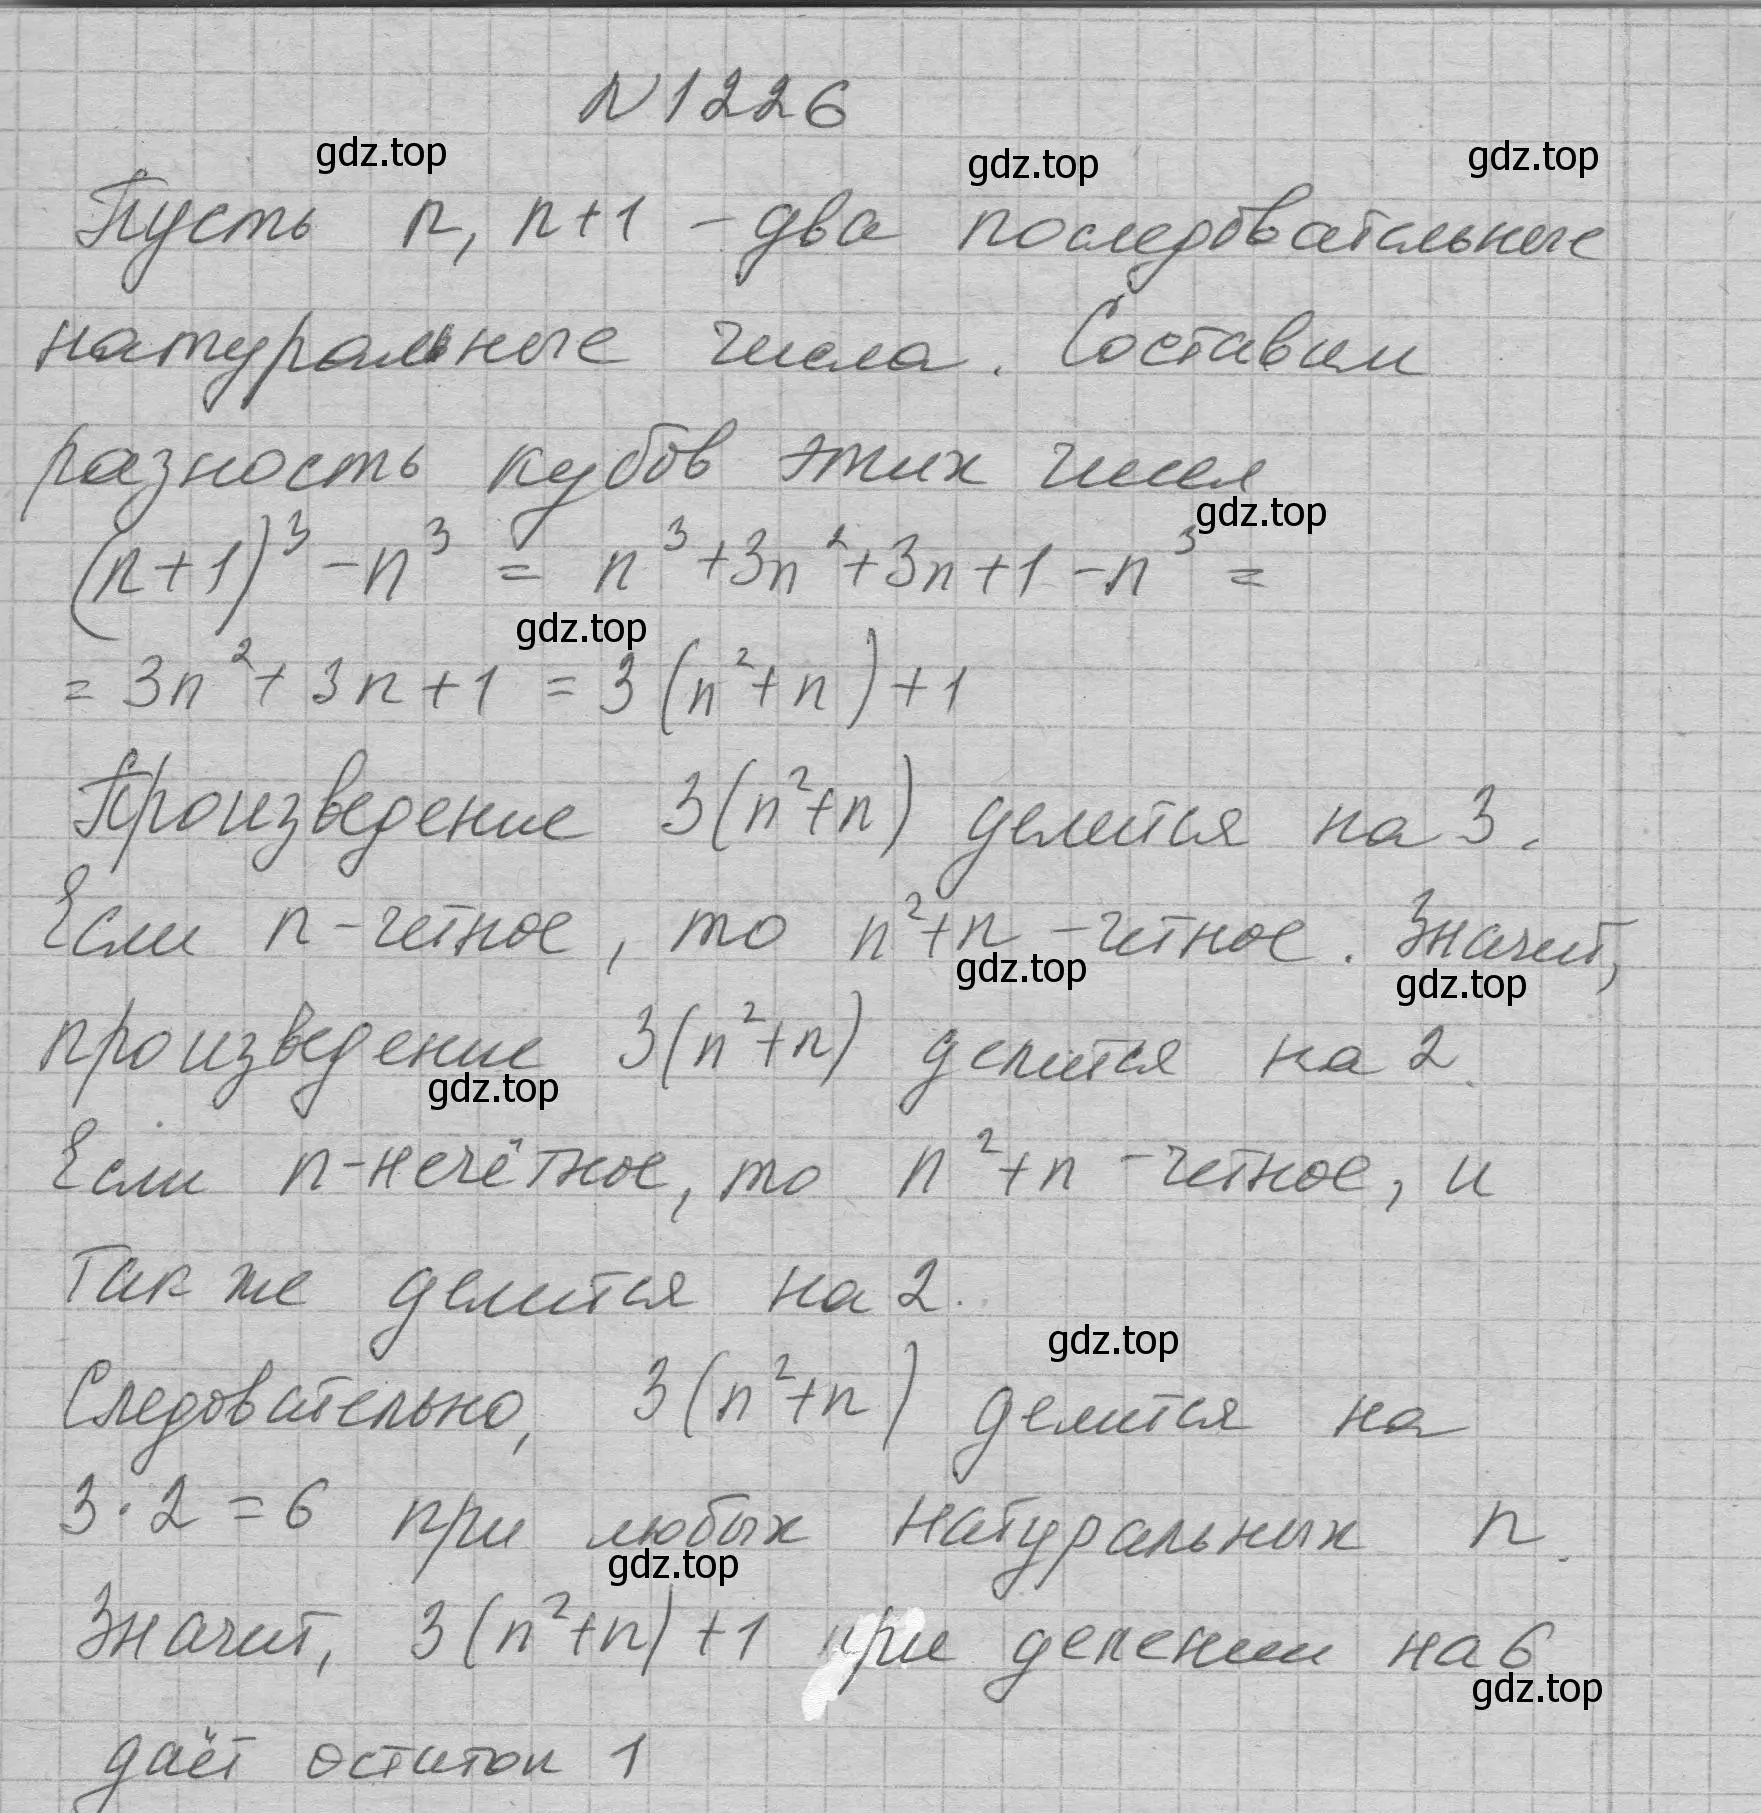 N 1226
gdz.top gdz.top gdz.top
Пусть n, n+1 – два последовательные
натуральные числа. Составим
разность кубов этих чисел
gdz.top
(n+1)³ – n³ = n³ + 3n² + 3n + 1 – n³ =
gdz.top
= 3n² + 3n + 1 = 3(n² + n) + 1
Произведение 3(n²+n) делится на 3.
Если n – четное, то n²+n – четное. Значит,
gdz.top gdz.top
произведение 3(n²+n) делится на 2.
gdz.top
Если n – нечётное, то n²+n – четное, и
так же делится на 2.
gdz.top
Следовательно, 3(n²+n) делится на
3·2=6 при любых натуральных n.
gdz.top
Значит, 3(n²+n)+1 при делении на 6
gdz.top
даёт остаток 1